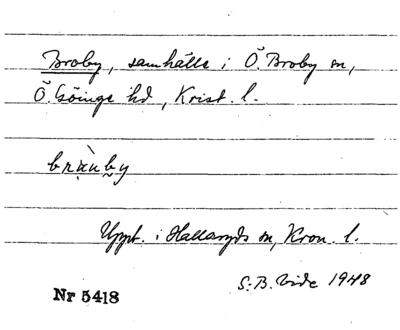 Broby, samhälle i Ö. Broby sn,
Ö. Göinge hd, Krist. l.
bräùnby
Uppt. i Hallaryds sn, Kron. l.
S.B. Vide 1948
Nr 5418